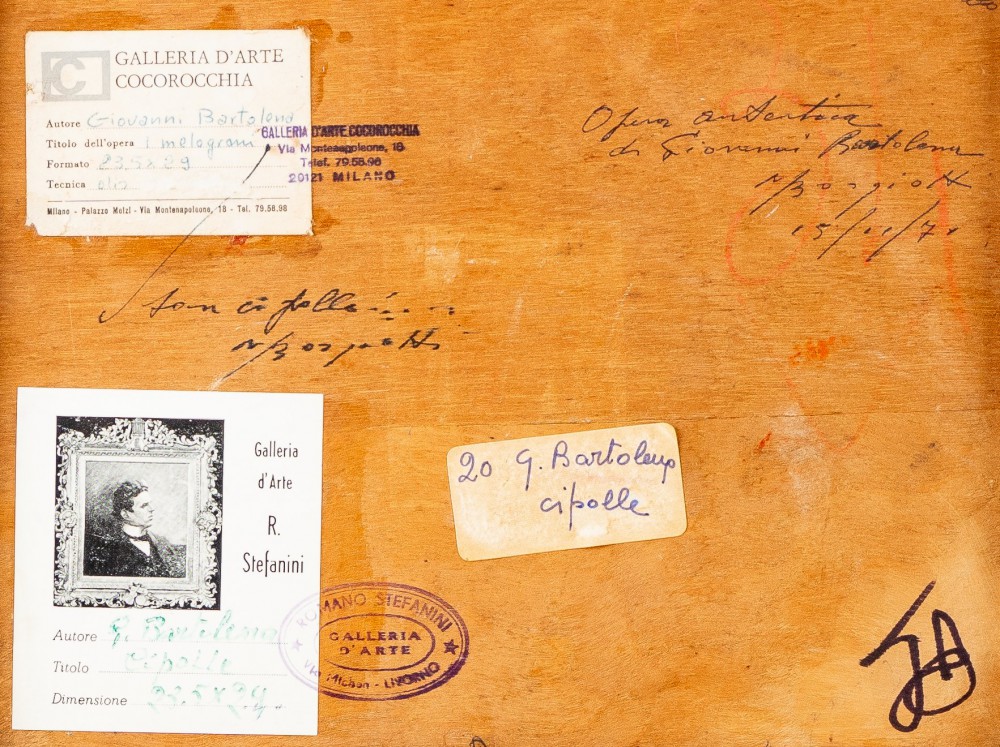 GALLERIA D'ARTE
COCOROCCHIA
Autore Giovanni Bartolena
Titolo dell'opera I melograni
Formato 23,5 x 29
Tecnica olio
Milano - Palazzo Melzi - Via Montenapoleone, 18 - Tel. 79.58.98
GALLERIA D'ARTE COCOROCCHIA
Via Montenapoleone, 18
Telef. 79.58.98
20121 MILANO
Opera autentica
di Giovanni Bartolena
15/11/71
son cipolle
20 G. Bartolena
cipolle
Galleria
d'Arte
R.
Stefanini
Autore G. Bartolena
Titolo Cipolle
Dimensione 23.5 x 29
ROMANO STEFANINI
GALLERIA
D'ARTE
LIVORNO